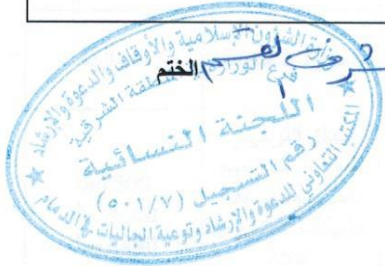 الختم
وزارة الشؤون الإسلامية والأوقاف والدعوة والإرشاد
فرع الوزارة بالمنطقة الشرقية
اللجنة النسائية
رقم التسجيل (٥٠١/٧)
المكتب التعاوني للدعوة والإرشاد وتوعية الجاليات في الدمام